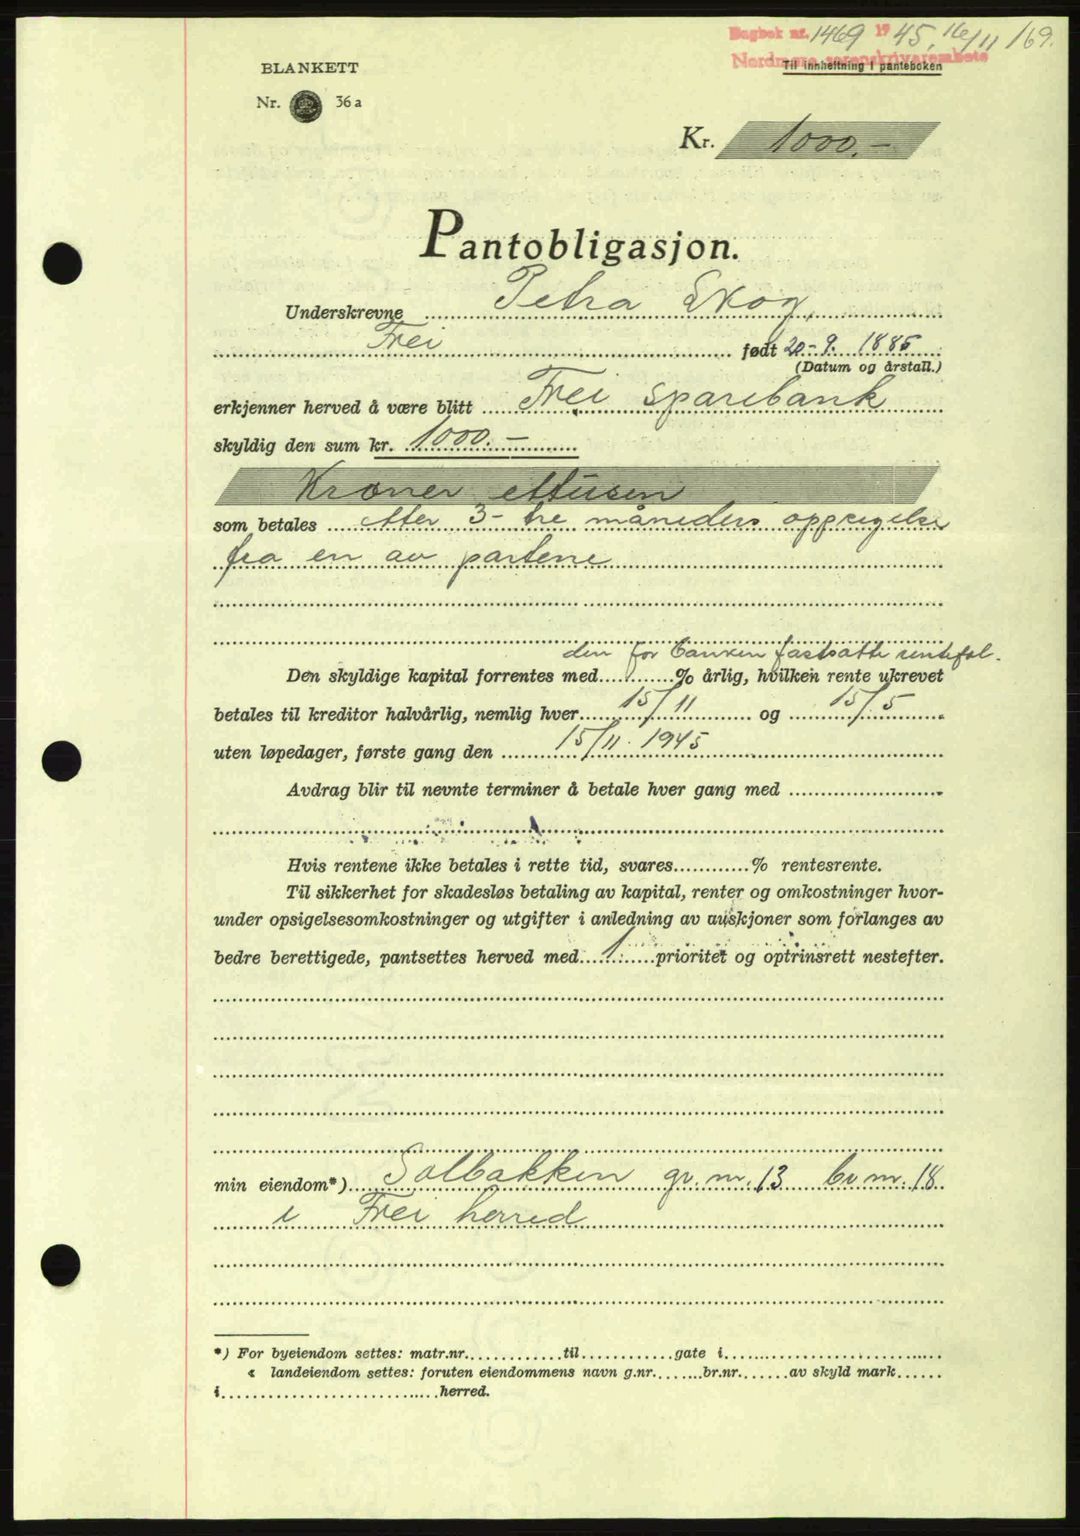 Dagbok nr. 1469 1945, 16/11 169.
Nordmøre sorenskriverembete
Til innheftning i panteboken
BLANKETT
Nr. 36 a
Kr. 1000.-
Pantobligasjon.
Underskrevne Petra Skog,
Frei født 20-9. 1886
(Datum og årstall.)
erkjenner herved å være blitt Frei sparebank
skyldig den sum kr. 1000.-
Kroner ettusen
som betales etter 3- tre måneders oppsigelse
fra en av partene
den for banken fastsatte rentefot.
Den skyldige kapital forrentes med % årlig, hvilken rente ukrevet
betales til kreditor halvårlig, nemlig hver 15/11 og 15/5
uten løpedager, første gang den 15/11 1945
Avdrag blir til nevnte terminer å betale hver gang med
Hvis rentene ikke betales i rette tid, svares % rentesrente.
Til sikkerhet for skadesløs betaling av kapital, renter og omkostninger hvor-
under opsigelsesomkostninger og utgifter i anledning av auksjoner som forlanges av
bedre berettigede, pantsettes herved med 1 prioritet og optrinsrett nestefter.
min eiendom*) Solbakken gr. nr. 13 br nr. 18
i Frei herred
*) For byeiendom settes: matr.nr. til gate i
« landeiendom settes: foruten eiendommens navn g.nr. br.nr. av skyld mark
i herred.